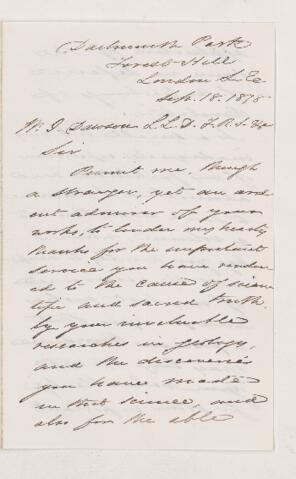 Dartmouth Park
Forest Hill
London S. E.
Sep. 18. 1878
W. J. Dawson L L. D. F. R. S. &c
Sir
Permit me, though
a stranger, yet an ard
ent admirer of your
works, to tender my hearty
thanks for the important
service you have render
ed to the cause of scien
tific and sacred truth,
by your invaluable
researches in geology,
and the discoveries
you have made
in that science, and
also for the able